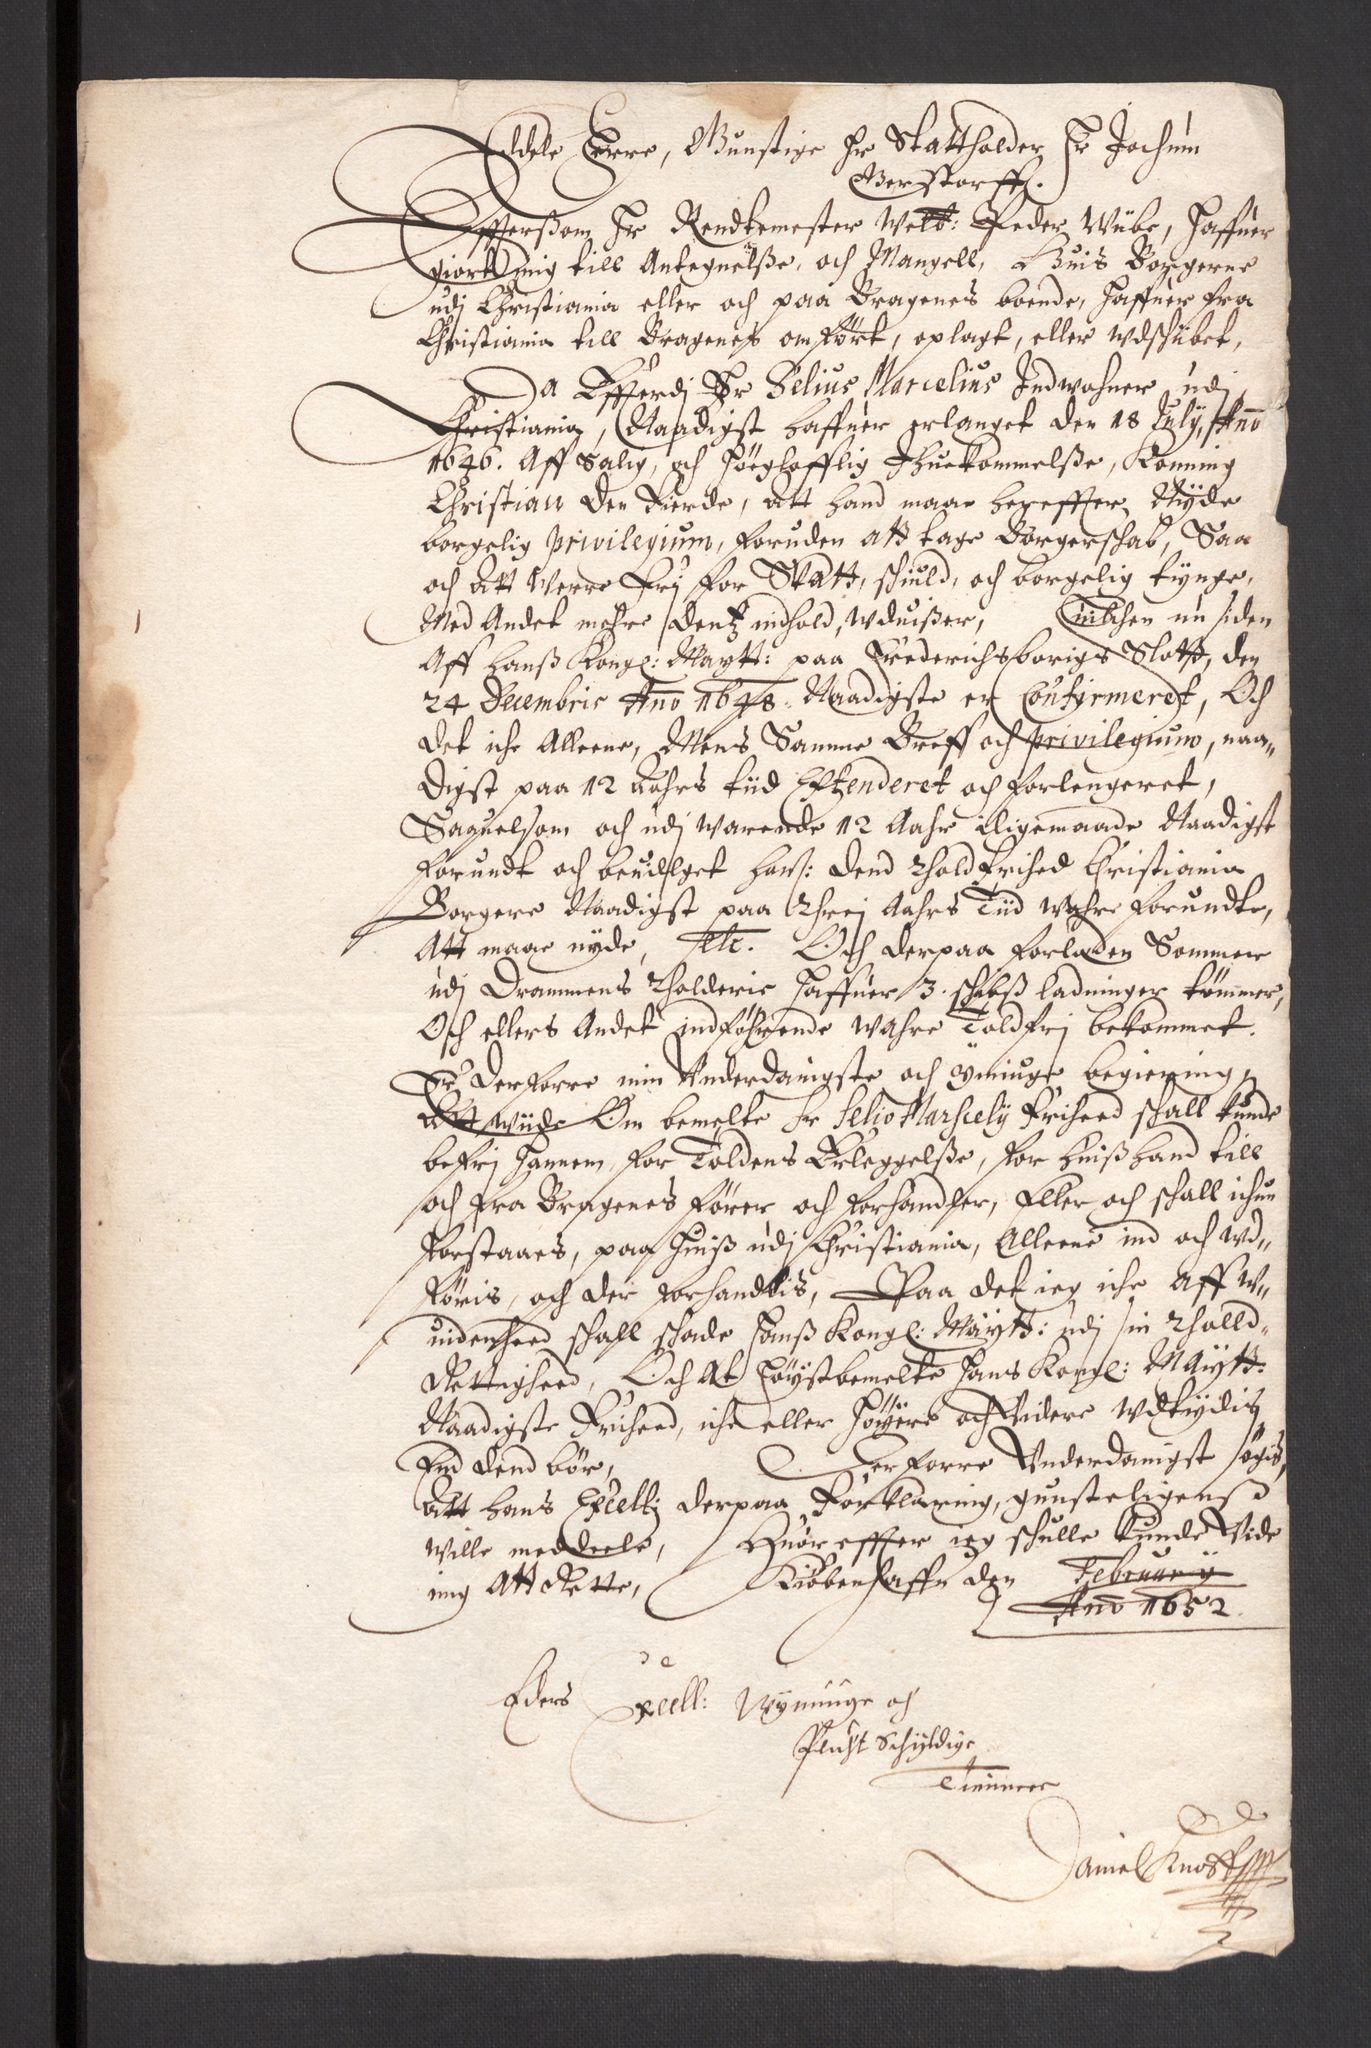 Eddele Herre, Gunstige Hr Stattholder Hr Jochum
Gerstorff.
Effterßom Hr Rendtemester Welb: Peder Wibe, haffuer
giort mig till Antegnelße, och Mangell, Huis Borgerne
udj Christiania eller och paa Bragenes boende, haffuer fra
Christiania till Bragenes omført, oplagt, eller udschibet,
Da Efferdj Hr Selius Marcelius Indwohner udj
Christiania, Naadigst haffuer erlanget den 18 July, Anno
1646. Aff Salig, och Høeghofflig Ihuekommelße, Konning
Christian den Fierde, att hand maae hereffter Nyde
borgelig privilegium, foruden att tage Borgerschab, Saa
och att werre Frj for Skatt, schuld, och borgelig tynge,
Med Andet mehre dends indhold, wduißer, huilchen nu siden
Aff hanß Kongl: Maytt: paa Frederichsborigs Slott, den
24 Decembris Anno 1648. Naadigste er Confirmeret, Och
det iche Alleene, Mens Samme Breff och privilegium, naa„
digst paa 12 Aahrs tiid Extenderet och forlengeret,
Saquelsom och udj warende 12 Aahr iligemaade Naadigst
forundt och beuilget ham: dend Thold frihed Christiania
Borgere Naadigst paa Threj Aahrs Tiid wahre forundte,
Att maae nyde, etc. Och derpaa forladen Sommer
udj Drammens Tholderie haffuer 3. schibß ladninger tømmer,
Och ellers Andet indføhrende wahre Toldfrj bekommet.
Er derforre min Underdanigste och ydmiuge begiering
Att wiide Om bemelte Hr Selio Marscely Friheed schall kunde
befrj hannem, for Toldens Erleggelße, for huiß hand till
och fra Bragenes fører och forhandler, Eller och schall ichun
forstaaes, paa huiß udj Christiania, Alleene ind och wd„
føris, och der forhandlis, Paa det ieg iche aff w„
uidenheed schall schade hanß Kongl: Maytt: udj sin Tholld„
Rettigheed, Och at høystbemelte Hans Kongl: Maytt:
Naadigste Friheed, iche eller høyere och widere wdtydis
End dend bør, Derforre Underdanigst søgis,
att hans Excell: derpaa Forklaring, gunsteligen
wille meddeele, Huoreffter ieg schulle kunde wide
mig Att Rette, Kiøbenhaffn den February
Anno 1652.
Eders Excell: Wdmiuge och
Plicht Schyldige
Tienner
Daniel Knoff